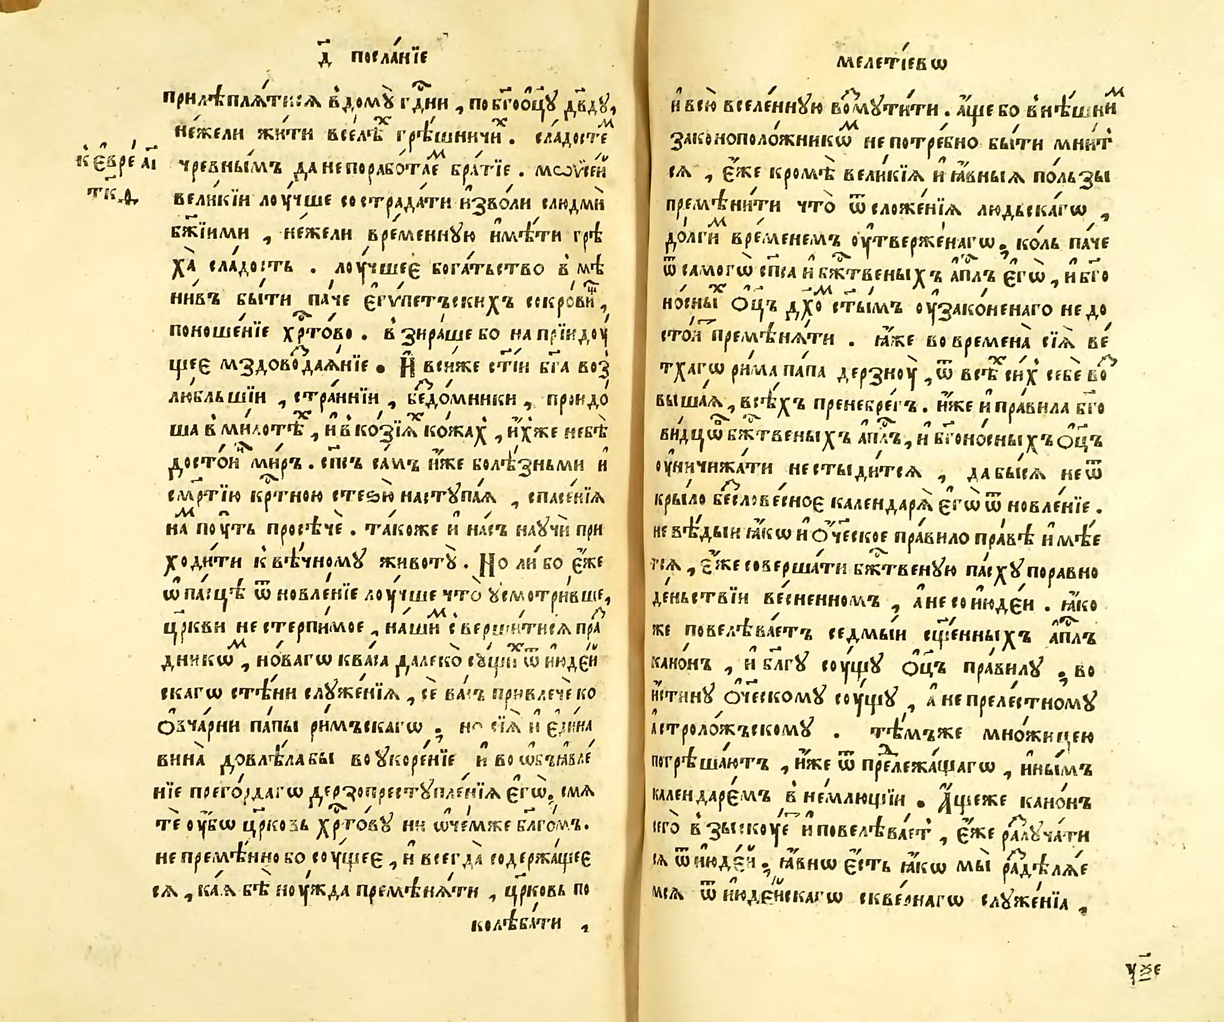 д҃ посла́нїе
прилѣпля́тися в̾дому̀ гдⷭ҇ни , по бг҃ооц҃у дв҃ду,
не́жели жити вселѣⷯ грѣ́шничиⷯ . сла́достеⷨ
к̾ евре́ аі҃
чре́внымъ да непорабо́таеⷨ бра́тїе . моѷсе́й
тк҃д
вели́кїи лоу́чше сострада́ти и҆зво́ли слюдмѝ
бж҃їими , не́жели вре́менную и҆мѣ́ти грѣ
ха̀ сла́дость . лоу́чшеє бога́тьство в̾мѣ
ни́въ бы́ти па́че є҆гѵ́петъскихъ сокро́виⷳ ,
поноше́нїе хрⷭ҇то́во . в̾зира́ше бо на прїидоу́
щеє мздово́даѧ́нїе . И҆ вси́же ст҃і́и бг҃а воз̾
лю́бльшїи , стра́ннїи , бе́домники , прои́до
ша в̾ми́лотѣⷯ , и҆ в̾ко́зїѧⷯ ко́жаⷯ , и҆́хже небѣ̀
досто́инъ ми́ръ . сп҃съ са́мъ и҆́же болѣ́зньми и҆
сме́ртїю крⷭ҇тною стезю̀ наступа́ѧ , спасе́нїѧ
наⷨ поу́ть просѣ́че . та́коже и҆ на́съ научѝ при
ходи́ти к̾вѣ́чному животу̀ . Но ли́бо є҆́же
ѡ҆ па́сцѣ ѿновле́нїе лоу́чше что̀ усмотри́вше,
цр҃кви не стерпи́мое , на́шиⷨ сверши́тися пра́
дникѡⷨ , но́вагѡ ква́са дале́ко су́щиⷯ ѿ и҆юде́й
скагѡ стѣ́ни служе́нїѧ , сѐ ва́съ привлечѐ ко
ѻ҆вча́рни па́пы ри́мъскагѡ ; но сїѧ̀ и҆ є҆ди́на
вина̀ довлѣ́лабы во укоре́нїе и҆ во ѡ҆бъѧвле́
нїе прего́рдагѡ дерзопреступле́нїѧ є҆гѡ̀. смѧ
те́ оу҆бѡ цр҃ковь хрⷭ҇то́ву ни ѡ҆ че́мже благо́мъ.
не премѣ́нно бо соу́щеє , и҆ всегда̀ содержа́щеє
сѧ , ка́ѧ бѣ̀ ноу́жда премѣнѧ́ти , цр҃ковь по
колѣба́ти ,
меле́тїевѡ
и҆ всю̀ вселе́нную возмути́ти . а҆́ще бо внѣ́шниⷨ
законополо́жникѡⷨ не потре́бно бы́ти мни́т
сѧ , є҆́же кромѣ̀ вели́кїѧ и҆ ѧ҆́вныѧ по́льзы
премѣни́ти что̀ ѿ сложе́нїѧ людьска́гѡ ,
до́лгиⷨ вре́менемъ оу҆тверже́нагѡ. ко́ль па́че
ѿ самогѡ̀ сп҃са и҆ бжⷭ҇твеныхъ а҆пⷭ҇лъ є҆гѡ̀ , и҆ бг҃о
но́сныⷯ ѻ҆ц҃ъ дх҃оⷨ ст҃ы́мъ оу҆зако́ненаго не до
сто́и премѣнѧ́ти . ꙗ҆́же во времена̀ сїѧ̀ ве́
тхагѡ ри́ма па́па дерзноу̀ , ѿ всѣ́ⷯ си́хъ себѐ во
выша́ѧ , всѣ́хъ пренебре́гъ . и҆́же и҆ пра́вила бг҃о
ви́дцѡⷡ бжⷭ҇твеныхъ а҆пⷭ҇лъ , и҆ бг҃оно́сныхъ ѻ҆ц҃ъ
оу҆ничижа́ти не стыди́тсѧ , да бы сѧ не ѿ
кры́ло бесловесноє календарѧ̀ є҆гѡ̀ ѿновле́нїе .
не вѣ́дыи ꙗ҆́кѡ и҆ ѻ҆ч҃еское пра́вило пра́вѣ и҆мѣ́е
тсѧ , є҆́же соверша́ти бжⷭ҇твеную па́сху поравно
де́ньствїи весне́нномъ , а҆ не со и҆юде́и . ꙗ҆́ко
же повелѣва́етъ седмы́и сщ҃е́нныхъ а҆пⷭ҇лъ
кано́нъ , и҆ бл҃гу соу́щу ѻ҆ц҃ъ пра́вилу , во
и҆́стину ѻ҆ч҃ескому соу́щу , а҆ не преле́стному
а҆строло́жъскому . тѣ́мъже мно́жицею
погрѣша́ютъ , и҆́же ѿ прележа́щагѡ , и҆ны́мъ
календаре́мъ в̾не́млющїи . А҆́щеже кано́нъ
сего̀ в̾зы́скоуетъ и҆ повелѣва́етъ , є҆́же разлуча́ти
сѧ ѿ и҆юде́й ; ꙗ҆́внѡ є҆́сть ꙗ҆́кѡ мы̀ раздѣлѧ́е
мсѧ ѿ и҆юде́йскагѡ скве́рнагѡ служе́нїа ,
у҆́же